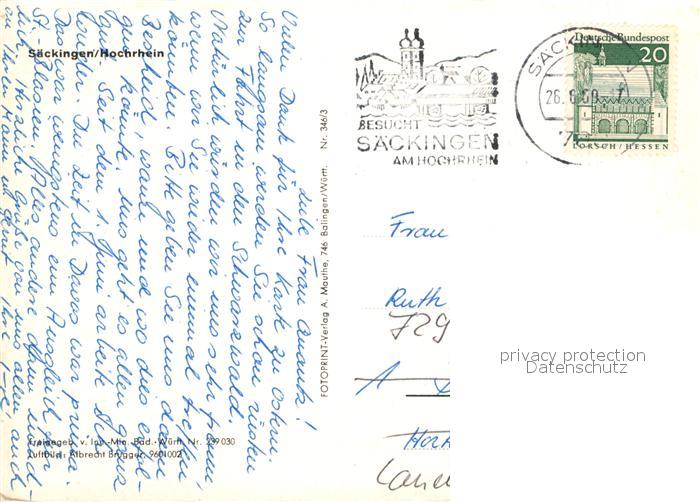 Säckingen/Hochrhein
Liebe Frau Quandt!
Vielen Dank für Ihre Karte zu Ostern.
So langsam werden Sie schon rüsten
zur Fahrt in den Schwarzwald.
Natürlich würden wir uns sehr freuen,
wenn wir Sie wieder einmal treffen
könnten. Bitte geben Sie uns dann
Bescheid, wann und wo dies
könnte. Uns geht es allen ganz
gut. Seit dem 1. Juni arbeite ich
wieder. Die Zeit in Davos war prima.
Das war wenigstens ein Ausgleich
St. Blasien. Alles andere dann
Herzliche Grüße von uns allen auch
an Ihren Mann
Ihre
Freigegeb. v. Inn.-Min. Bad.-Württ. Nr. 239030
Luftbild: Albrecht Brugger, 9601002
FOTOPRINT-Verlag A. Mauthe, 746 Balingen/Württ. Nr. 346/3
BESUCHT
SÄCKINGEN
AM HOCHRHEIN
26.6.69
Deutsche Bundespost
20
LORSCH/HESSEN
Frau
Ruth
729
privacy protection
Datenschutz